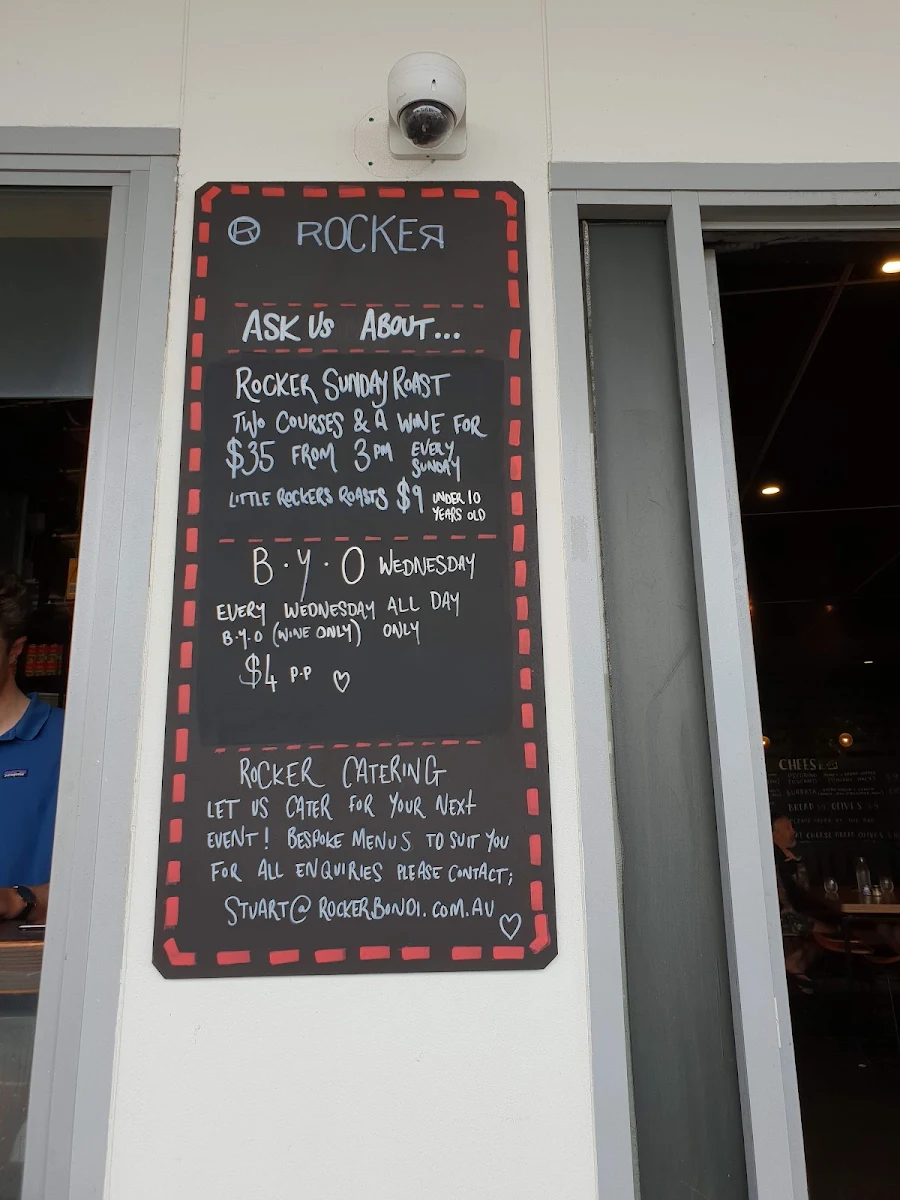 R ROCKER
ASK US ABOUT...
ROCKER SUNDAY ROAST
TWO COURSES & A WINE FOR
$35 FROM 3PM EVERY SUNDAY
LITTLE ROCKERS ROASTS $9 UNDER 10 YEARS OLD
B.Y.O WEDNESDAY
EVERY WEDNESDAY ALL DAY
B.Y.O (WINE ONLY) ONLY
$4 P.P
ROCKER CATERING
LET US CATER FOR YOUR NEXT
EVENT! BESPOKE MENUS TO SUIT YOU
FOR ALL ENQUIRIES PLEASE CONTACT;
STUART@ROCKERBONDI.COM.AU
patagonia
CHEESE
BURRATA
BREAD
OLIVES